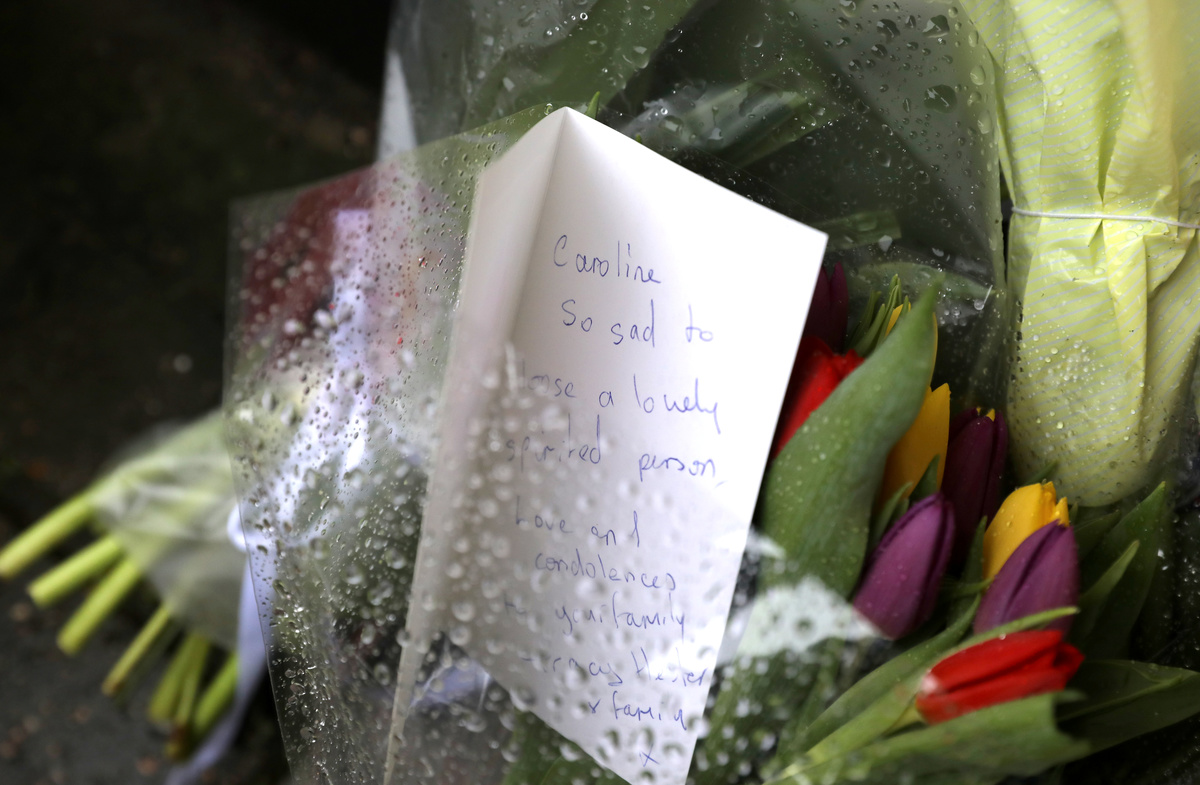 Caroline
So sad to
loose a lovely
spirited person,
Love and
condolences
to your family
family
x